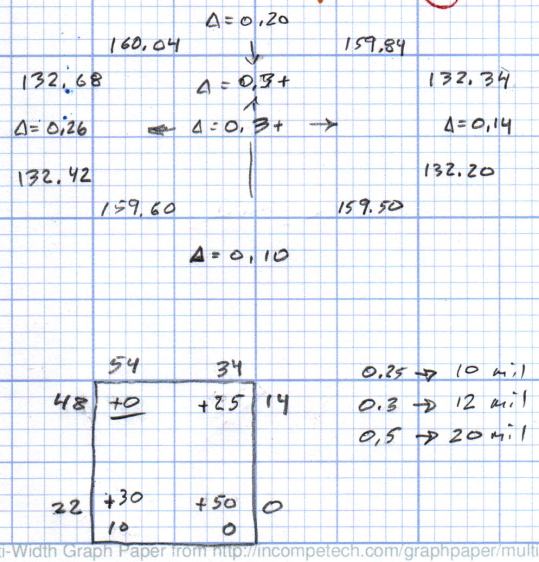 Δ = 0,20
160.04 159.84
132.68 Δ = 0,3+ 132.34
Δ = 0,26 Δ = 0,3+ Δ = 0,14
132.42 132.20
159.60 159.50
Δ = 0,10
54 34
48 +0 +25 14
0.25 → 10 mil
0.3 → 12 mil
0,5 → 20 mil
22 +30 +50 0
10 0
ti-Width Graph Paper from http://incompetech.com/graphpaper/multi